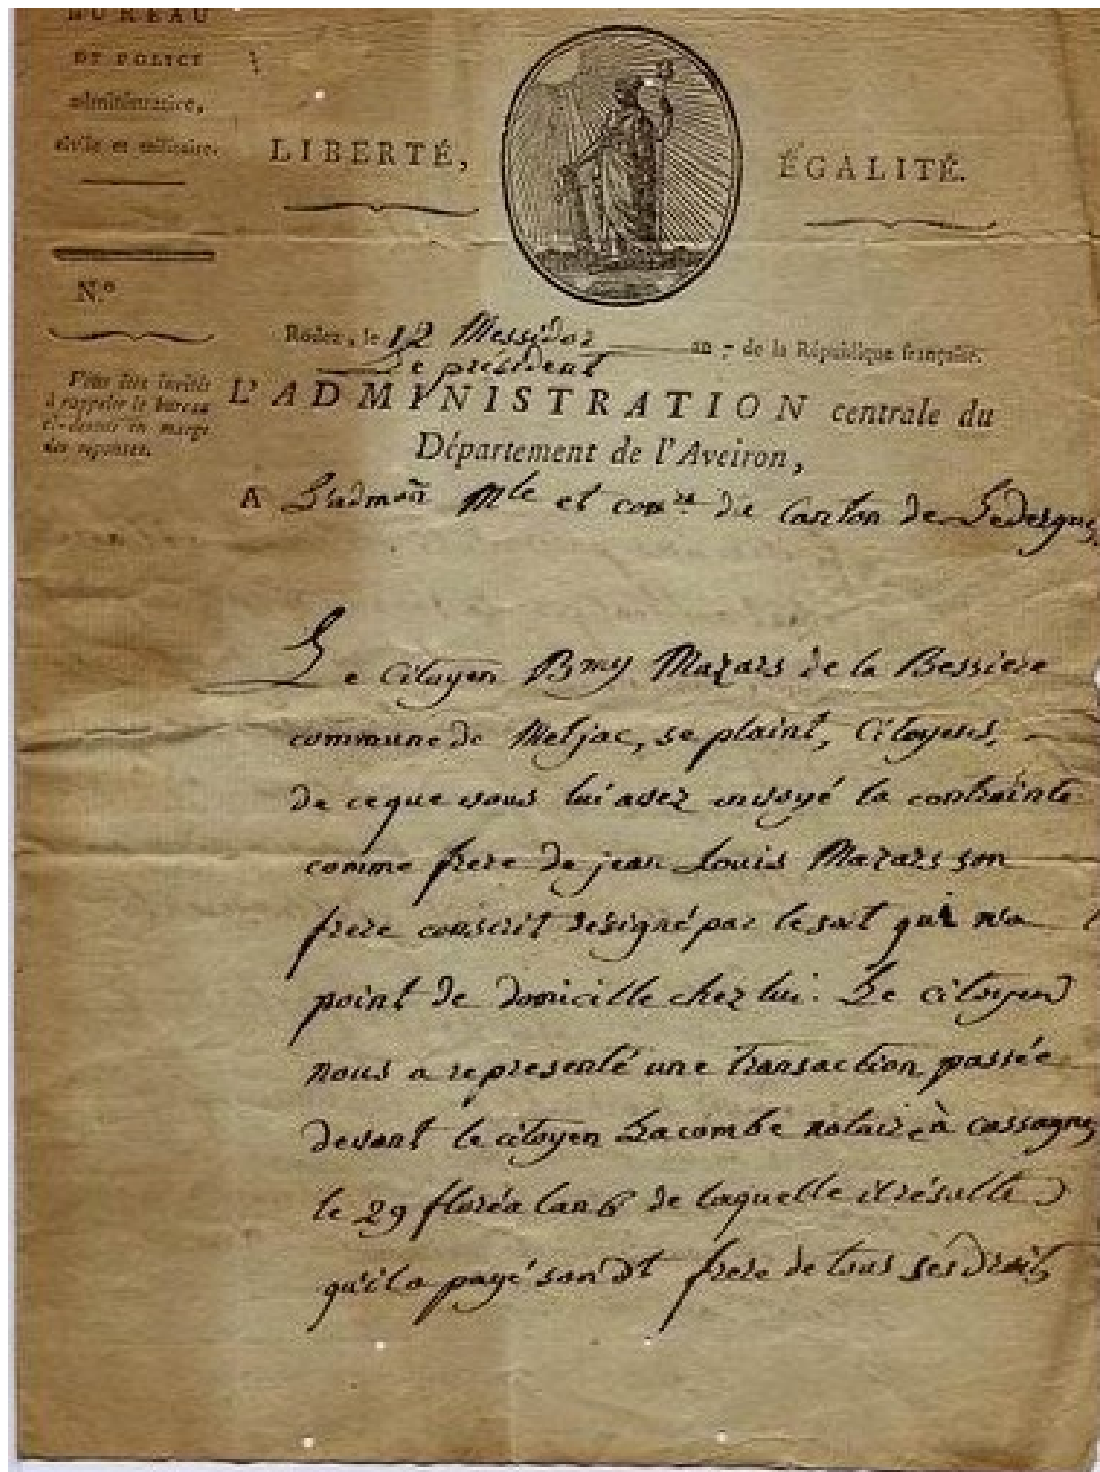 BUREAU
DE POLICE
administrative,
civile et militaire.
LIBERTÉ,
ÉGALITÉ.
N.º
Rodez, le 12 Messidor an 7 de la République française.
Le président
Vous êtes invités
à rappeler le bureau
ci-dessus en marge
des réponses.
L'ADMINISTRATION centrale du
Département de l'Aveiron,
A L'adm.on M.le et com.re du Canton de Ledergues
Le Citoyen B.my Mazars de la Bessiere
commune de Meljac, se plaint, Citoyens,
de ce que vous lui avez envoyé la contrainte
comme frere de jean Louis Mazars son
frere conscrit designé par le sort qui n'a
point de domicille chez lui. Le citoyen
nous a representé une transaction passée
devant le citoyen Lacombe notaire à cassagnes
le 29 floréa lan 6 de laquelle il résulte
qu'il a payé son dt frere de tous ses droits